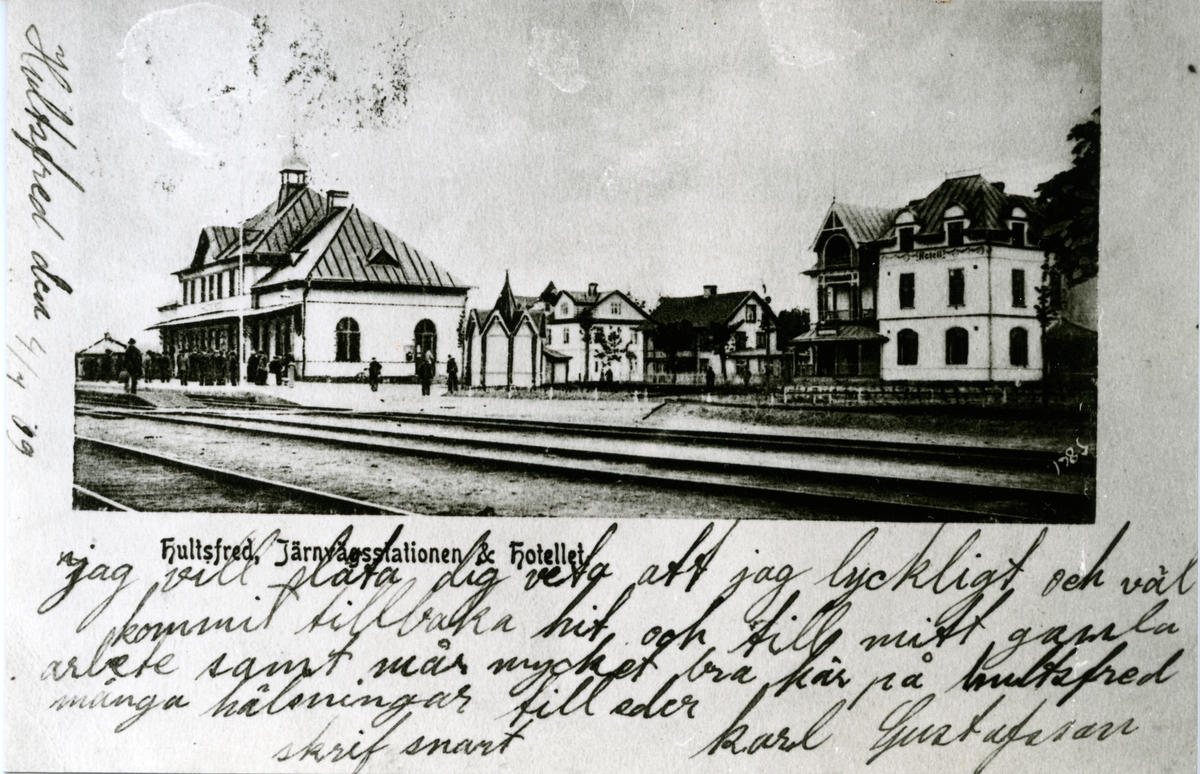 Hultsfred den 4/7 09
Hotell
1785
Hultsfred, Järnvägsstationen & Hotellet
jag vill låta dig veta att jag lyckligt och väl
kommit tillbaka hit och till mitt gamla
arbete samt mår mycket bra här på hultsfred
många hälsningar till eder
skrif snart Karl Gustafsson